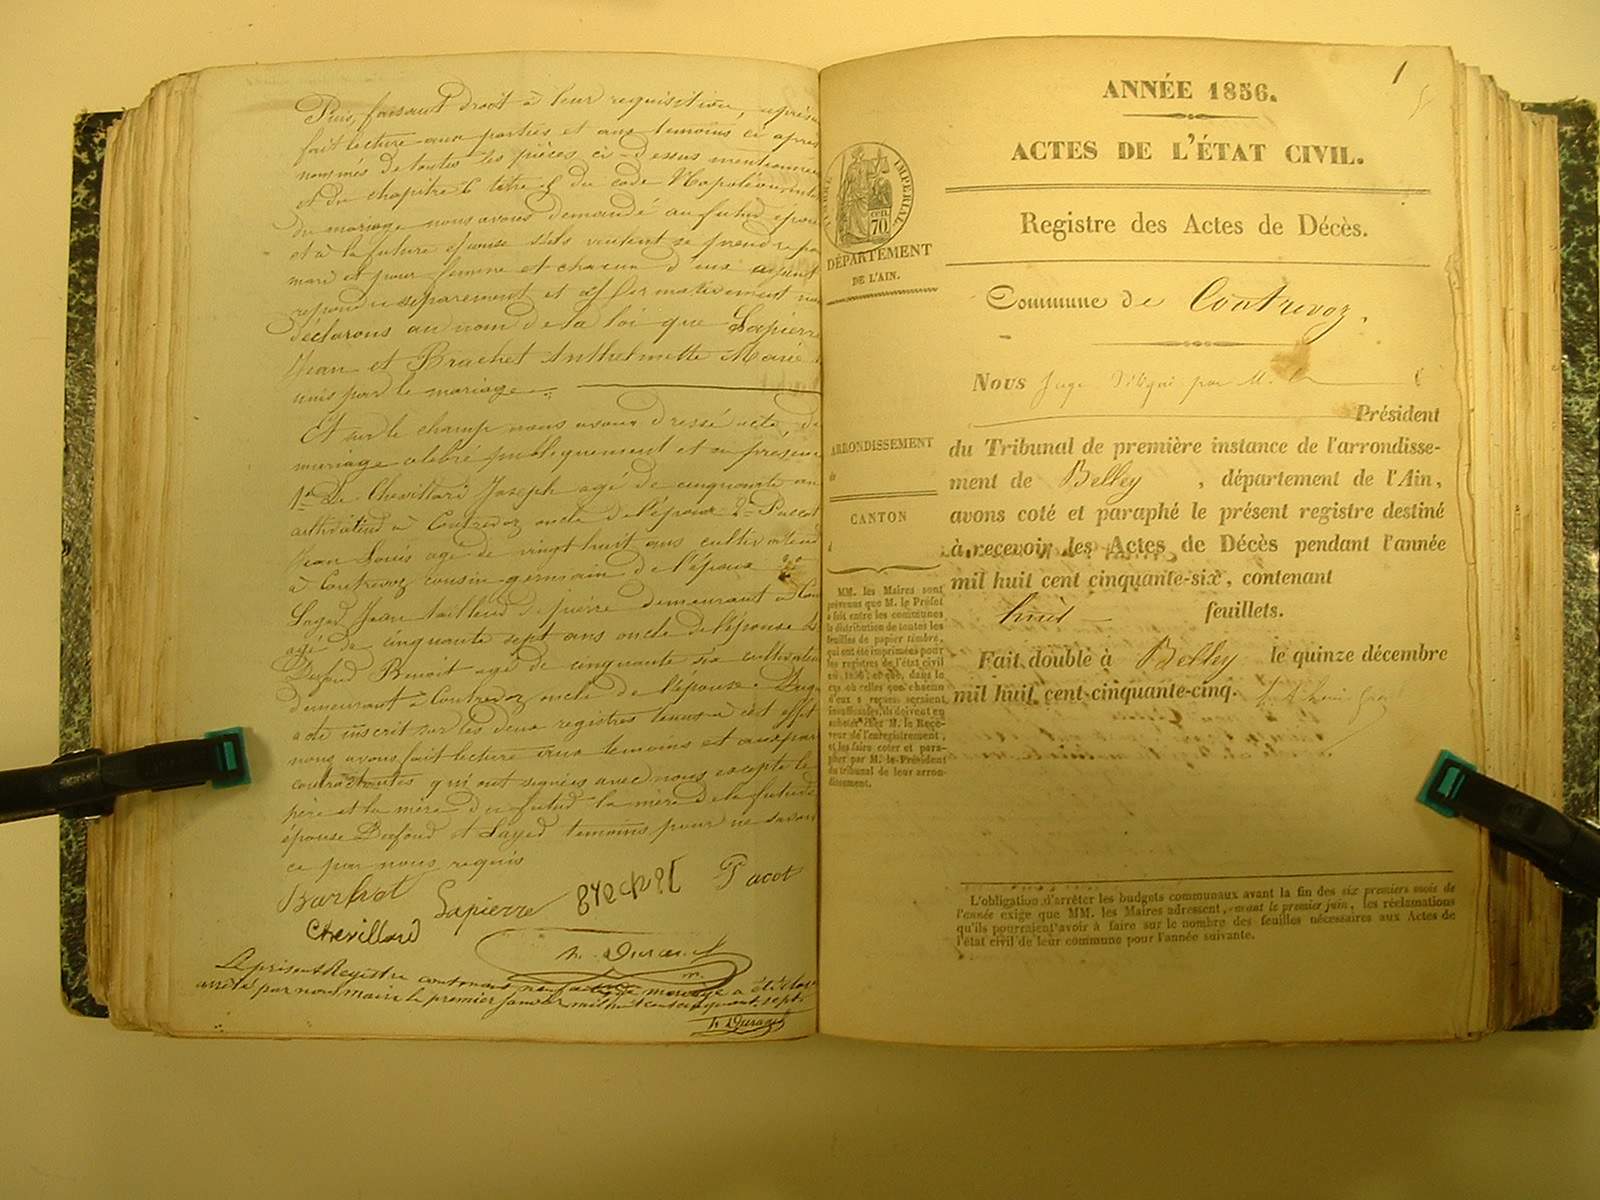 Puis, faisant droit à leur requisition, après
fait lecture aux parties et aux temoins ci après
nommés de toutes les pièces ci-dessus mentionnées
et du chapitre 6 titre 5 du code Napoléon, intit
du mariage nous avons demandé au futur époux
et à la future épouse s'ils veulent se prendre po
mari et pour femme et chacun d'eux ayant
repondu séparement et affirmativement nous
déclarons au nom de la loi que Lapierre
Jean et Brachet Anthelmette Marie
unis par le mariage.
Et sur le champ nous avons dressé acte, de
mariage célébré publiquement et en presence
1° De Chevillard Joseph agé de cinquante ans
cultivateur à Contrevoz oncle de l'époux 2° Paccot
Jean Louis agé de vingt huit ans cultivateur
à Contrevoz cousin germain de l'époux 3°
Layed Jean tailleur de pierre demeurant à Con
agé de cinquante sept ans oncle de l'épouse 4
Benoit agé de cinquante six cultivateur
demeurant à Contrevoz oncle de l'épouse.
a été inscrit sur les deux registres tenus à cet effet
nous avons fait lecture aux temoins et aux par
contractantes qui ont signées avec nous excepté le
père et la mère du futur la mère de la future
épouse et Layed temoins pour ne savoir
ce par nous requis
Lapierre Pacot
Chevillard
h. Durand
Le présent Registre contenant neuf actes de mariage a été clos
arrêté par nous, maire le premier janvier mil huit cent cinquante sept.
h Durand
1
ANNÉE 1856.
ACTES DE L'ÉTAT CIVIL.
TIMBRE IMPÉRIAL
CEN.
70
Registre des Actes de Décès.
DÉPARTEMENT
DE L'AIN.
Commune de Contrevoz.
Nous Juge Délégué par M. le
Président
du Tribunal de première instance de l'arrondisse-
ment de Belley , département de l'Ain,
avons coté et paraphé le présent registre destiné
à recevoir les Actes de Décès pendant l'année
mil huit cent cinquante-six, contenant
huit feuillets.
Fait double à Belley le quinze décembre
mil huit cent-cinquante-cinq.
ARRONDISSEMENT
de
CANTON
d
MM. les Maires sont
prévenus que M. le Préfet
a fait entre les communes
la distribution de toutes les
feuilles de papier timbré,
qui ont été imprimées pour
les registres de l'état civil
en 1856; et que, dans le
cas où celles que chacun
d'eux a reçues seraient
insuffisantes, ils doivent en
acheter chez M. le Rece-
veur de l'enregistrement,
et les faire coter et para-
pher par M. le Président
du tribunal de leur arron-
dissement.
L'obligation d'arrêter les budgets communaux avant la fin des six premiers mois de
l'année exige que MM. les Maires adressent, avant le premier juin, les réclamations
qu'ils pourraient avoir à faire sur le nombre des feuilles nécessaires aux Actes de
l'état civil de leur commune pour l'année suivante.